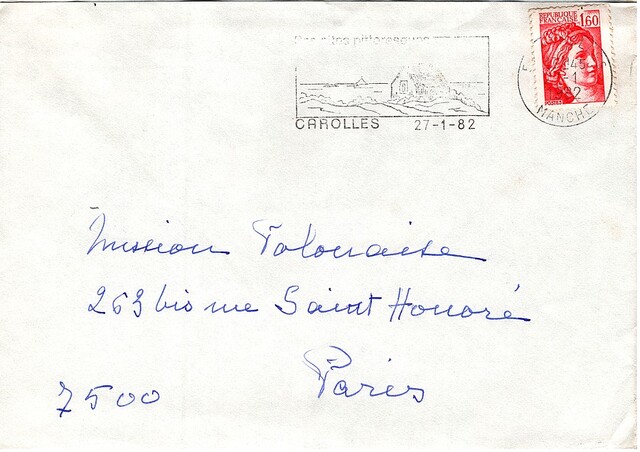 Ses sites pittoresques
CAROLLES 27-1-82
REPUBLIQUE FRANCAISE 1,60
POSTES
45
-1
82
MANCHE
Mission Polonaise
263 bis rue Saint Honoré
Paris
7500